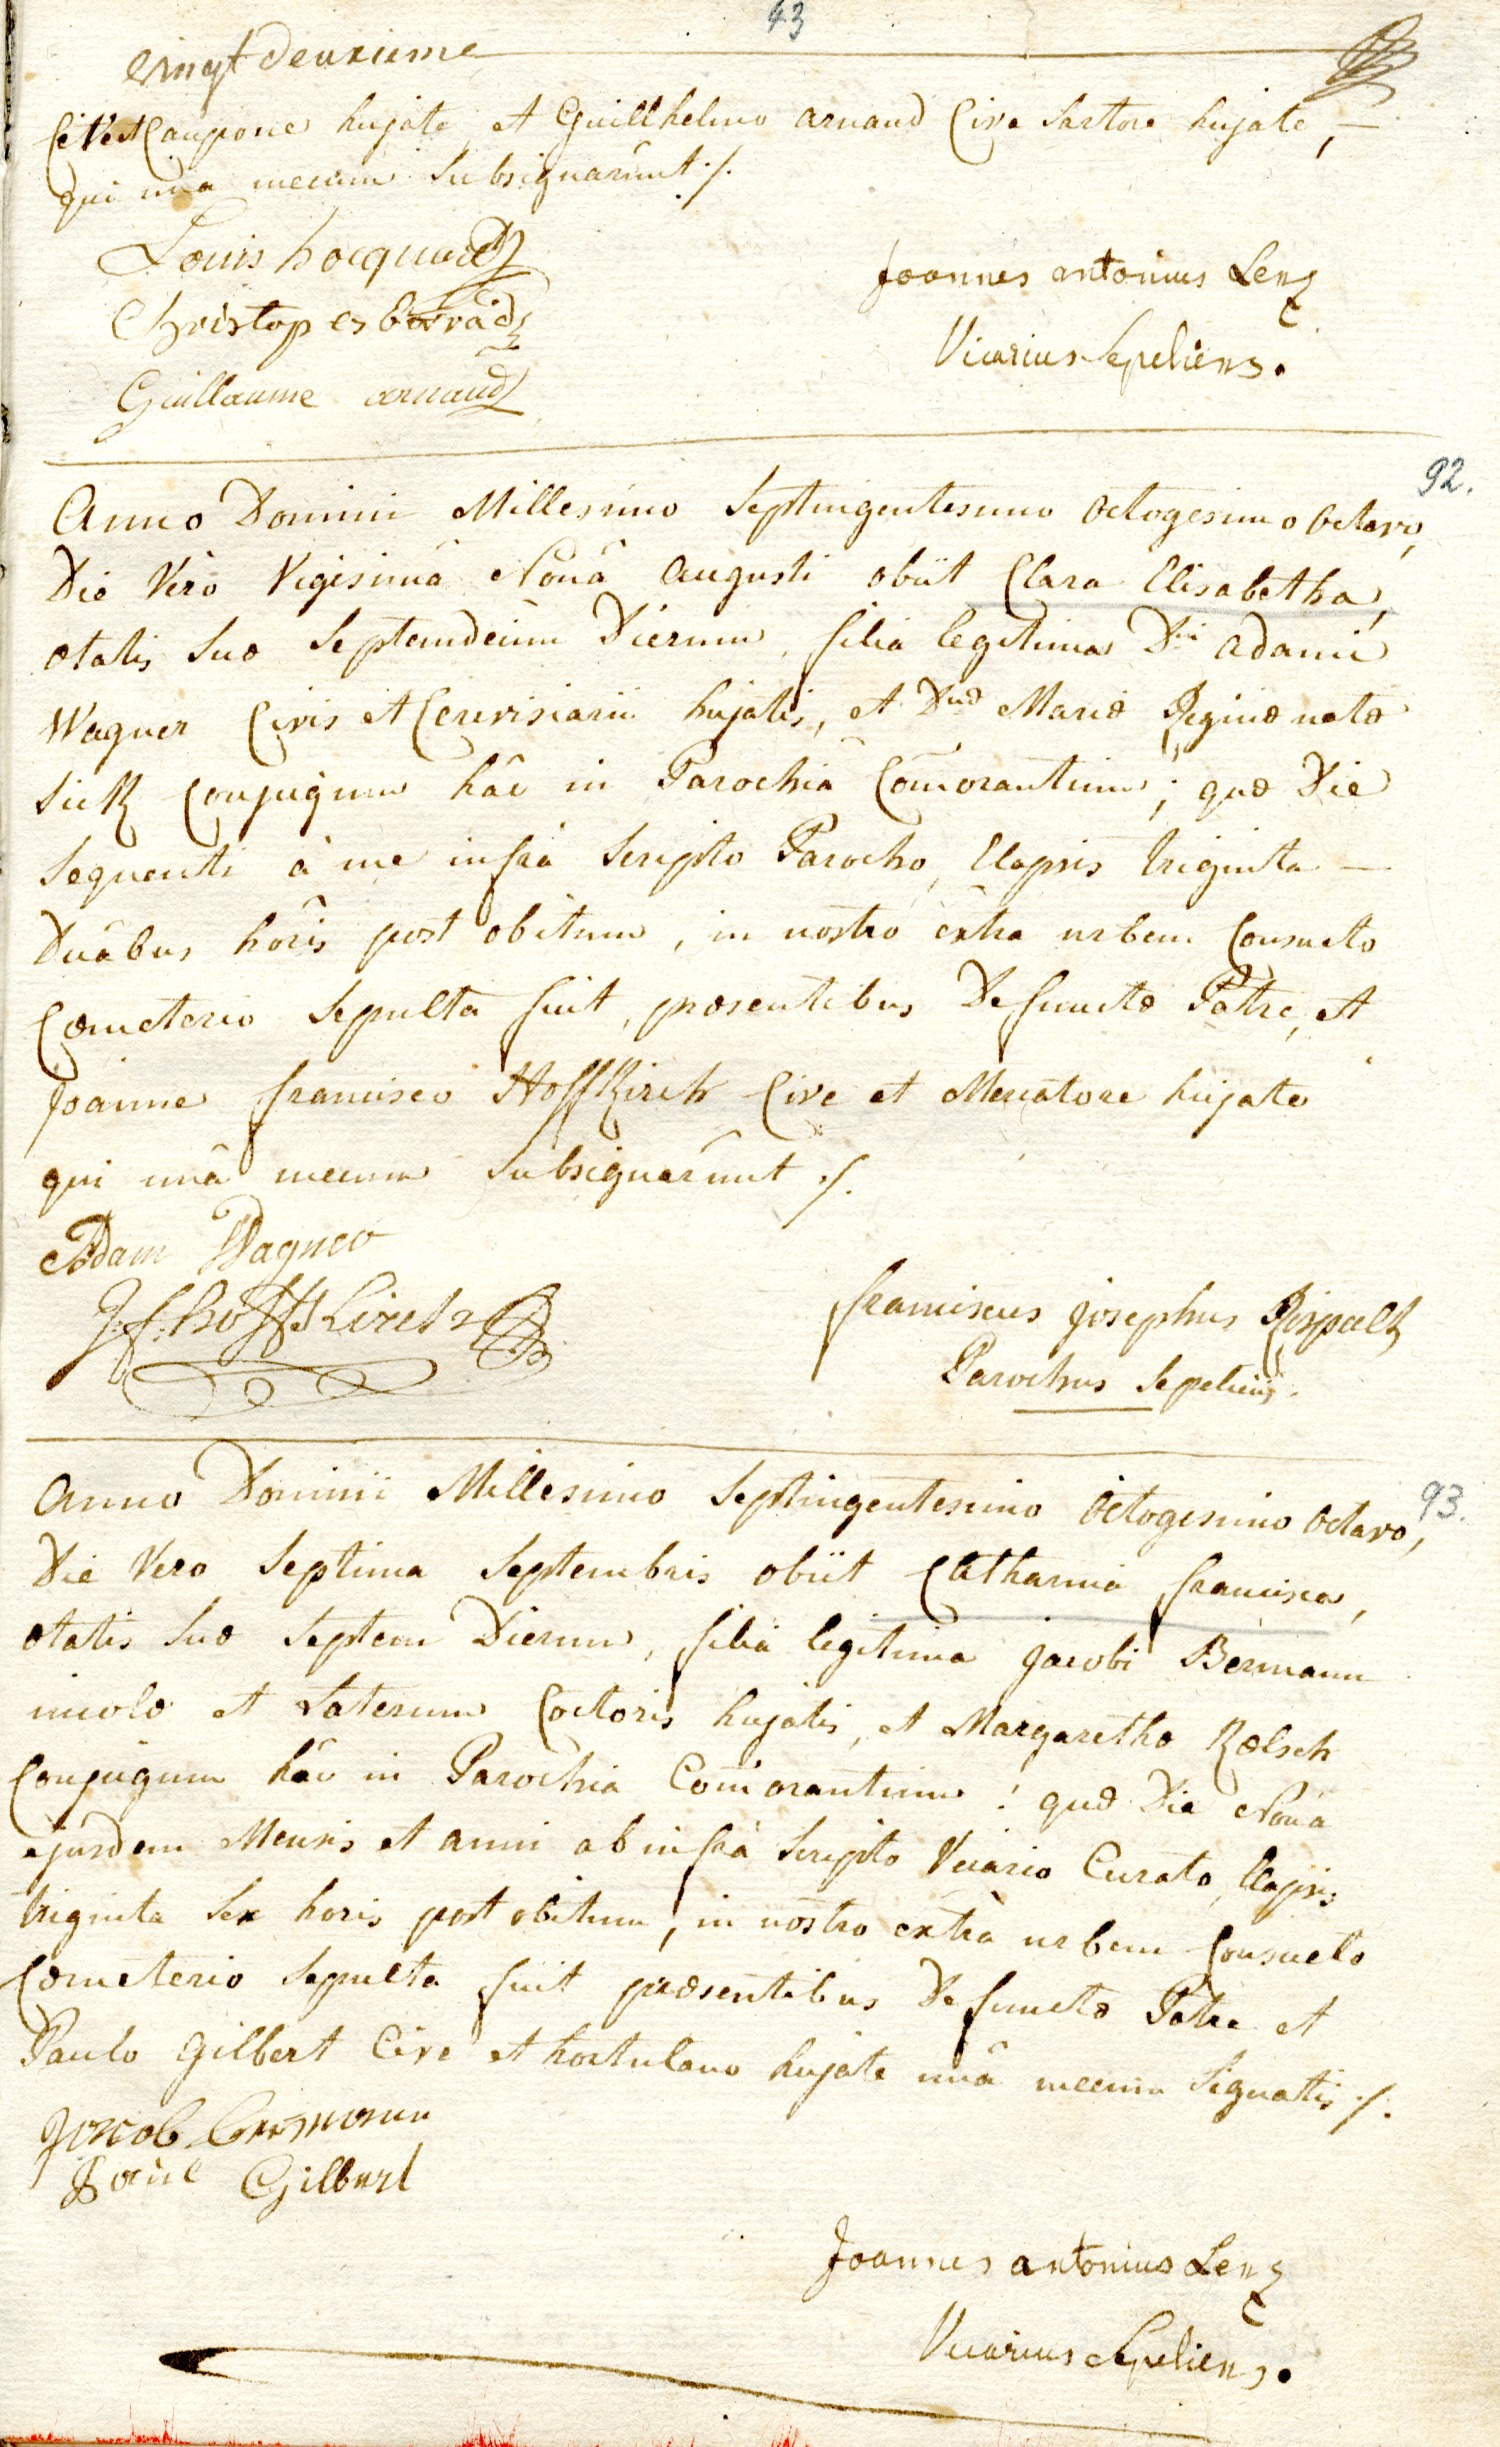 43
Vingt Deuxieme
Cive et Caupone hujate, et Guillhelmo arnaud Cive Sartore hujate, —
qui unà mecum Subsignarûnt ./.
Louis hocquard
Christop
Guillaume arnaud
Joannes antonius Lenz
Vicarius Sepeliens.
92.
Anno Domini Millesimo Septingentesimo octogesimo octavo,
Die Vero Vigesimâ Nonâ augusti obiit Clara Elisabetha,
ætatis suæ Septemdecim Dierum, filia legitima Dni adami
Wagner Civis et Cerevisiarii hujatis, et Dnæ Mariæ Reginæ natæ
Sick Conjugum hâc in Parochia Com̄orantium; quæ Die
Sequenti à me infrà Scripto Parocho, Elapsis triginta —
Duâbus horis post obitum, in nostro extra urbem Consueto
Cœmeterio Sepulta fuit, præsentibus Defunctæ Patre, et
Joanne francisco Hoffkirch Cive et Mercatore hujate
qui unâ mecum Subsignarûnt ./.
Adam Wagner
J: f: hoffkirch
franciscus josephus
Parochus Sepeliens.
93.
Anno Domini Millesimo Septingentesimo octogesimo octavo,
Die Vero Septima Septembris obiit Catharina francisca,
ætatis suæ Septem Dierum, filia legitima jacobi Bermann
incolæ et Laterum Coctoris hujatis, et Margarethæ Kœlsch
Conjugum hâc in Parochia Com̄orantium: quæ Die Nona
ejusdem Mensis et anni ab infrà Scripto Vicario Curato, Elapsis
triginta Sex horis post obitum, in nostro extrà urbem Consueto
Cœmeterio Sepulta fuit præsentibus Defunctæ Patre et
Paulo Gilbert Cive et hortulano hujate unâ mecum Signatis ./.
Jacob Bermann
Paul Gilbert
Joannes antonius Lenz
Vicarius Sepeliens.